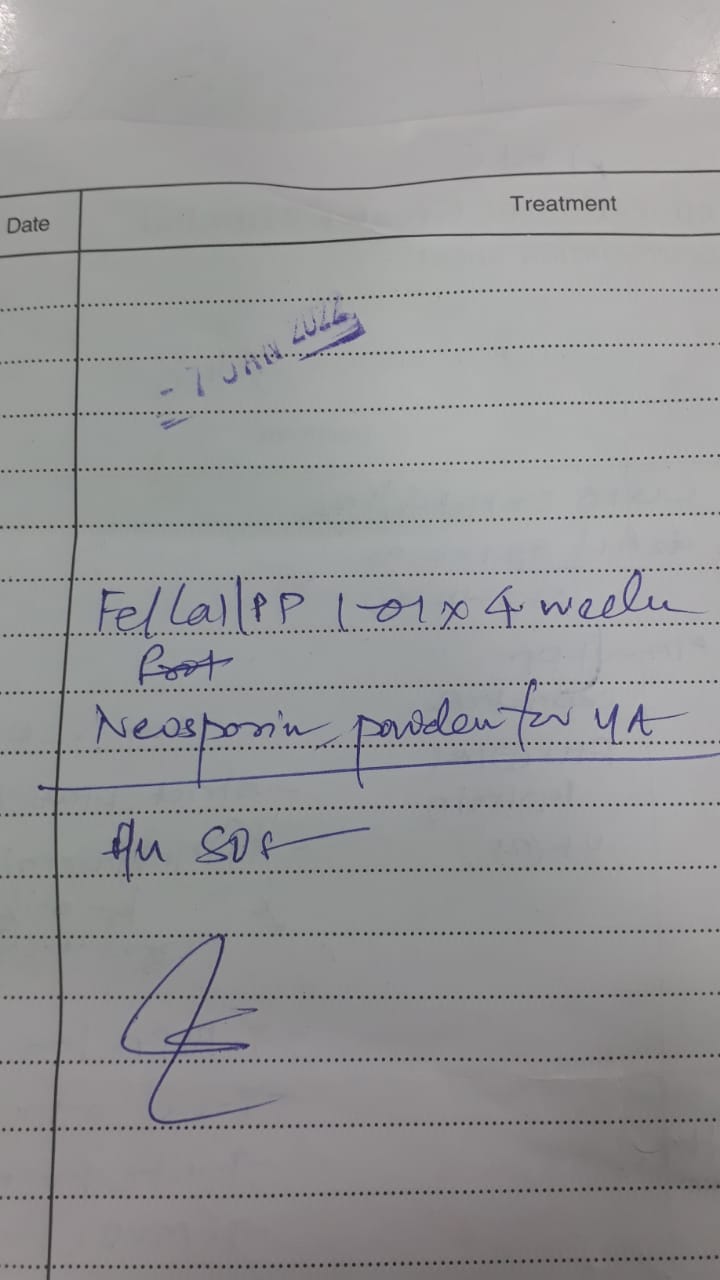 Date Treatment
- 7 JAN 2022
Fe/Cal/PP 1-01 x 4 weeks
Neosporin powder for LA
F/u SOS